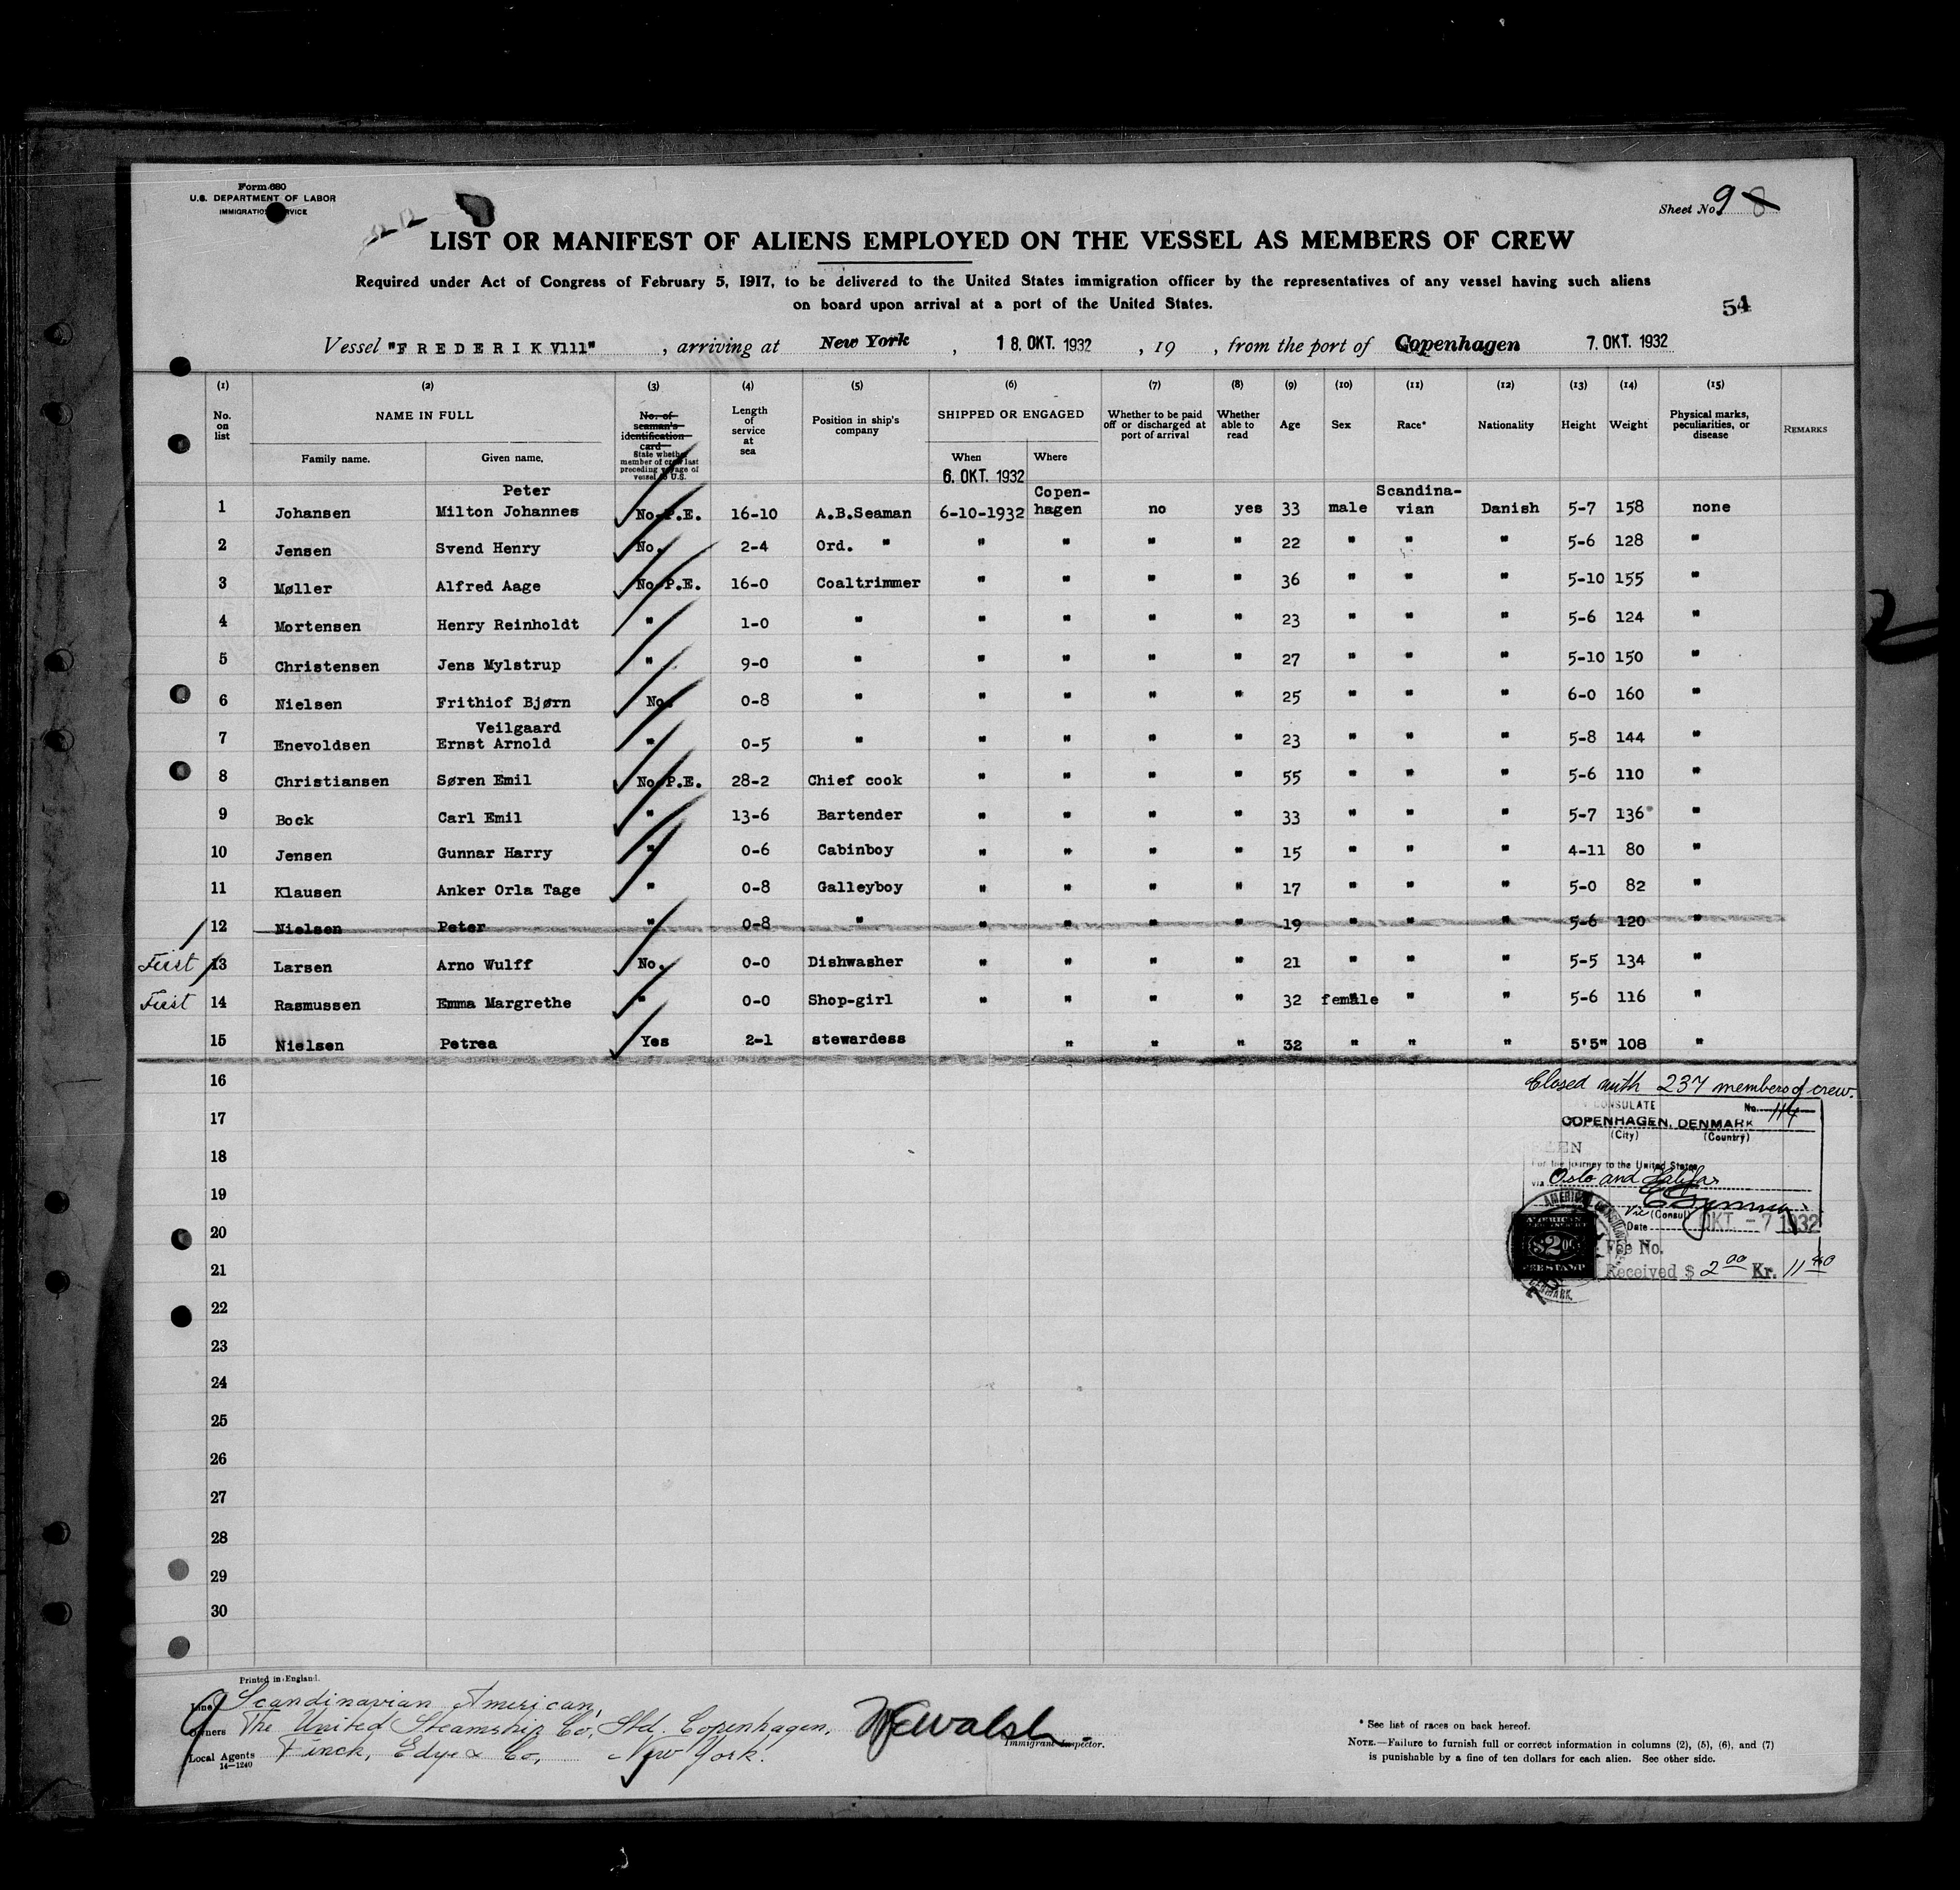 Form 680
U.S. DEPARTMENT OF LABOR
IMMIGRATION SERVICE
Sheet No 9 8
LIST OR MANIFEST OF ALIENS EMPLOYED ON THE VESSEL AS MEMBERS OF CREW
Required under Act of Congress of February 5, 1917, to be delivered to the United States immigration officer by the representatives of any vessel having such aliens
on board upon arrival at a port of the United States.
54
Vessel "FREDERIK V111" , arriving at New York , 18. OKT. 1932 , 19 , from the port of Copenhagen 7. OKT. 1932
(1) (2) (3) (4) (5) (6) (7) (8) (9) (10) (11) (12) (13) (14) (15)
No. on list
NAME IN FULL
Family name. Given name.
No. of seaman's identification card
State whether member of crew last preceding voyage of vessel to U.S.
Length of service at sea
Position in ship's company
SHIPPED OR ENGAGED
When Where
6. OKT. 1932
Whether to be paid off or discharged at port of arrival
Whether able to read
Age
Sex
Race*
Nationality
Height
Weight
Physical marks, peculiarities, or disease
REMARKS
Peter Copen- Scandina-
1 Johansen Milton Johannes No P.E. 16-10 A.B.Seaman 6-10-1932 hagen no yes 33 male vian Danish 5-7 158 none
2 Jensen Svend Henry No. 2-4 Ord. " " " " " 22 " " " 5-6 128 "
3 Møller Alfred Aage No P.E. 16-0 Coaltrimmer " " " " 36 " " " 5-10 155 "
4 Mortensen Henry Reinholdt " 1-0 " " " " " 23 " " " 5-6 124 "
5 Christensen Jens Mylstrup " 9-0 " " " " " 27 " " " 5-10 150 "
6 Nielsen Frithiof Bjørn No. 0-8 " " " " " 25 " " " 6-0 160 "
Veilgaard
7 Enevoldsen Ernst Arnold " 0-5 " " " " " 23 " " " 5-8 144 "
8 Christiansen Søren Emil No P.E. 28-2 Chief cook " " " " 55 " " " 5-6 110 "
9 Bock Carl Emil " 13-6 Bartender " " " " 33 " " " 5-7 136 "
10 Jensen Gunnar Harry " 0-6 Cabinboy " " " " 15 " " " 4-11 80 "
11 Klausen Anker Orla Tage " 0-8 Galleyboy " " " " 17 " " " 5-0 82 "
12 Nielsen Peter " 0-8 " " " " " 19 " " " 5-6 120 "
First 13 Larsen Arno Wulff No. 0-0 Dishwasher " " " " 21 " " " 5-5 134 "
First 14 Rasmussen Emma Margrethe " 0-0 Shop-girl " " " " 32 female " " 5-6 116 "
15 Nielsen Petrea Yes 2-1 stewardess " " " 32 " " " 5'5" 108 "
16
Closed with 237 members of crew.
17
CONSULATE No. 114
COPENHAGEN, DENMARK
(City) (Country)
18
For the journey to the United States
via Oslo and Halifax
19
Vice (Consul)
Date OKT - 7 1932
20
AMERICAN
$2.00
FEE STAMP
DENMARK.
Fee No.
21
Received $ 2 00 Kr. 11 40
22
23
24
25
26
27
28
29
30
Printed in England.
Line Scandinavian American,
Owners The United Steamship Co, Ltd. Copenhagen,
Local Agents Finck, Edye & Co, New York.
14—1240
WEWalsh
Immigrant Inspector.
* See list of races on back hereof.
NOTE.—Failure to furnish full or correct information in columns (2), (5), (6), and (7)
is punishable by a fine of ten dollars for each alien. See other side.